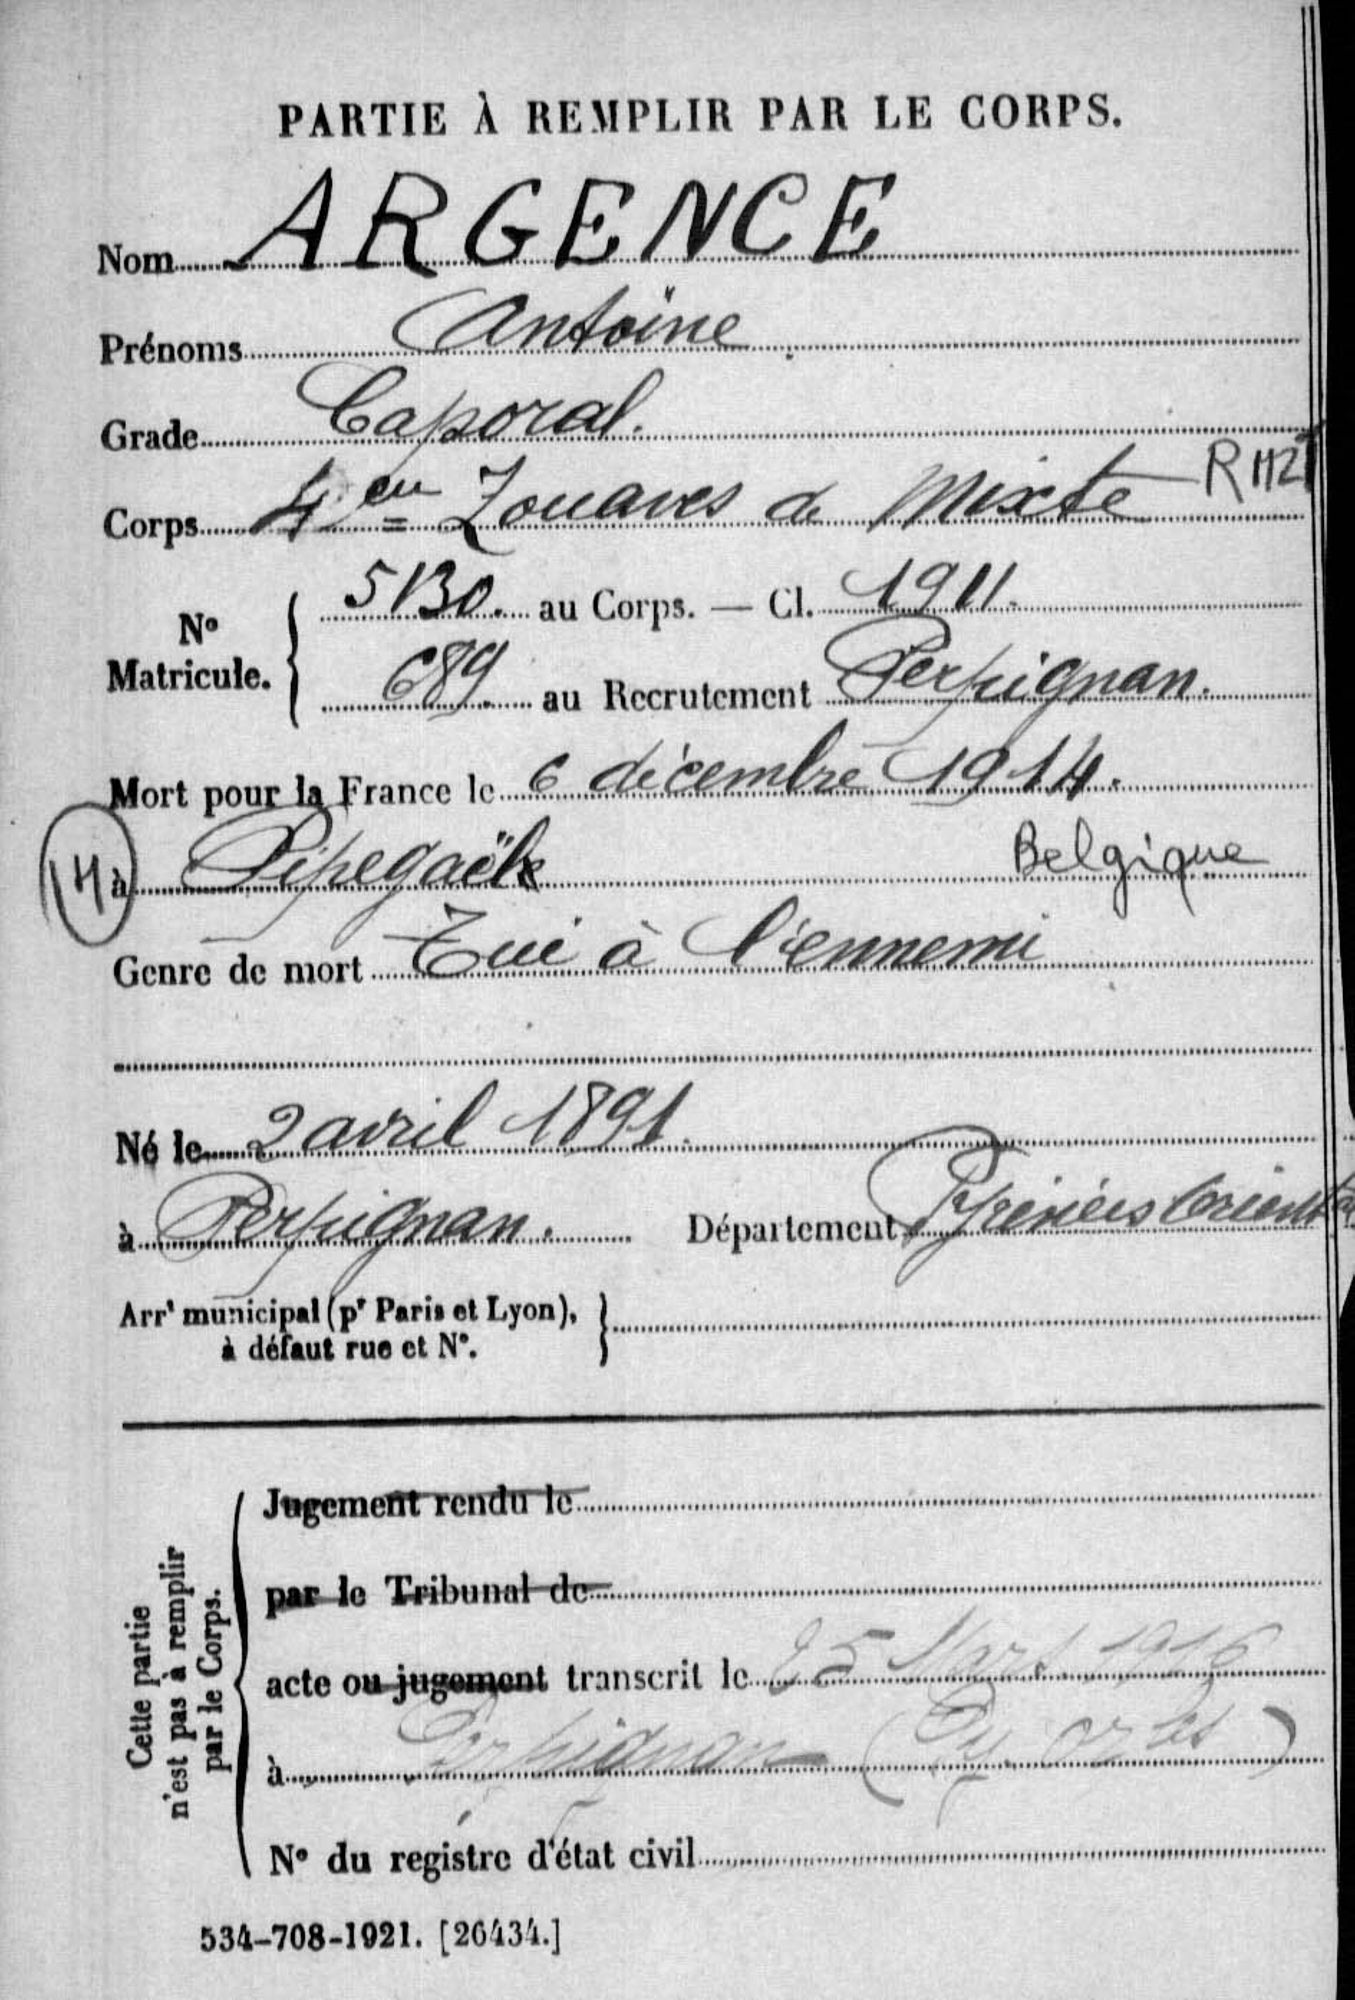 PARTIE À REMPLIR PAR LE CORPS.
Nom ARGENCE
Prénoms Antoine
Grade Caporal.
Corps 4e Zouaves de Mixte R 112
5130. au Corps. — Cl. 1911.
No Matricule.
689. au Recrutement Perpignan.
Mort pour la France le 6 décembre 1914.
14 à Pipegaële Belgique
Genre de mort Tué à l'ennemi
Né le 2 avril 1891.
à Perpignan. Département Pyrénées Orient
Arrt municipal (pr Paris et Lyon),
à défaut rue et No.
Cette partie
n'est pas à remplir
par le Corps.
Jugement rendu le
par le Tribunal de
acte ou jugement transcrit le 25 Mars 1916
à Perpignan (Py. Orles)
No du registre d'état civil
534-708-1921. [26434.]